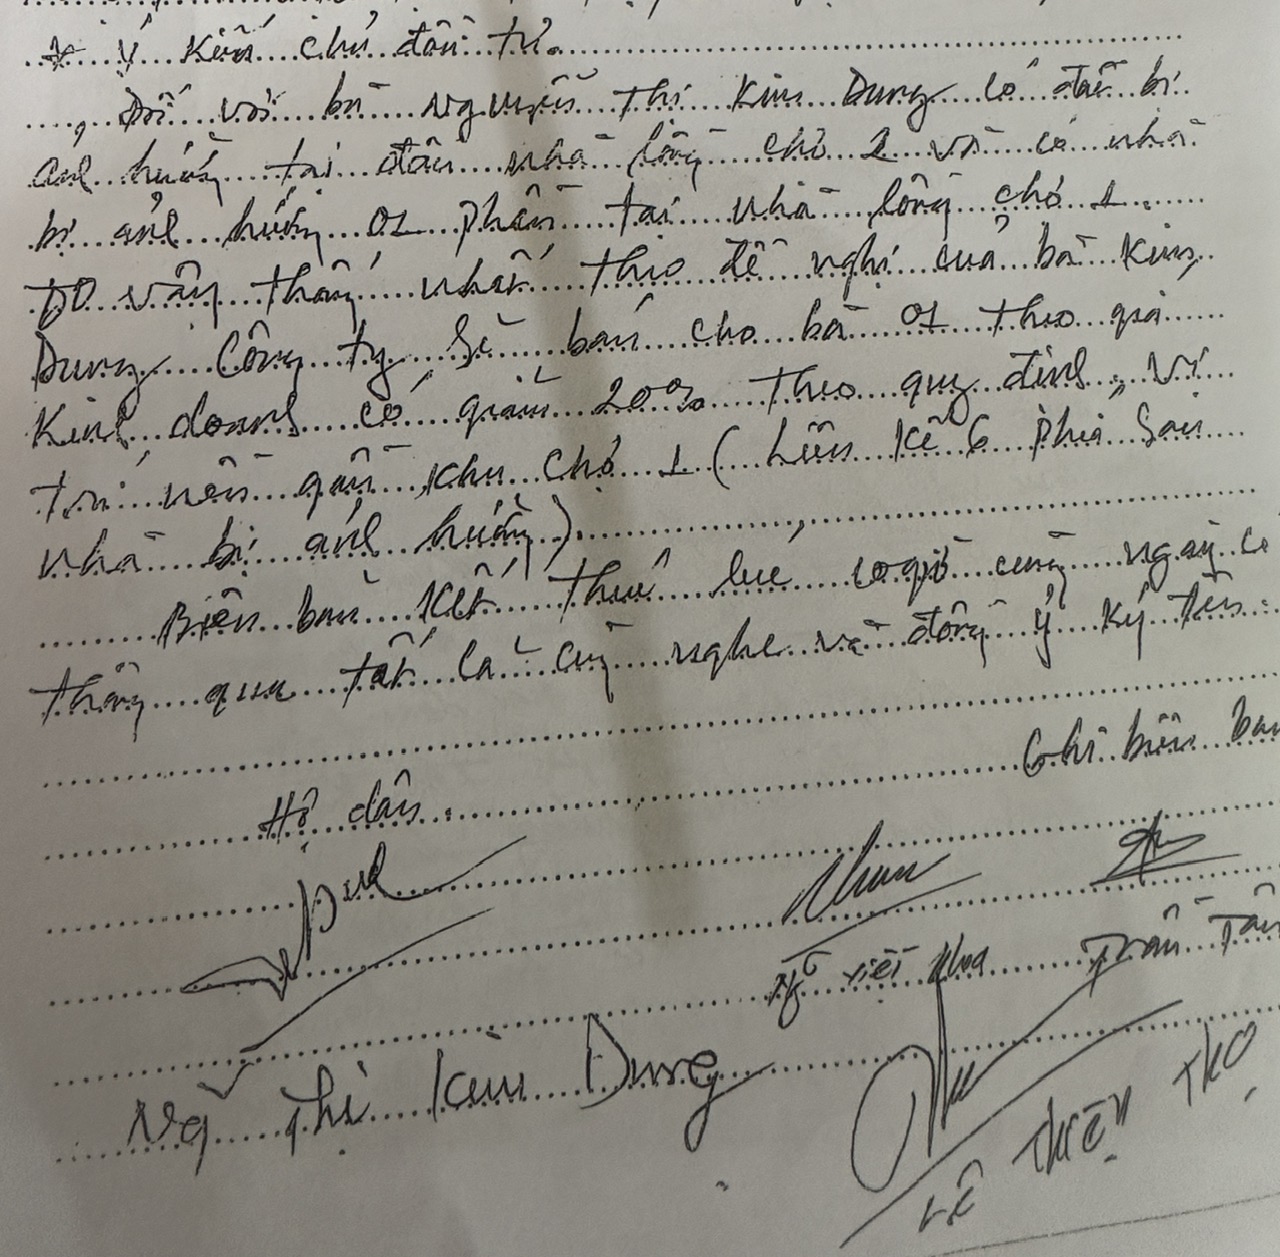 * Ý kiến chủ đầu tư.
, Đối với bà Nguyễn Thị Kim Dung có đất bị
ảnh hưởng tại đầu nhà lồng chợ 2 và có nhà
bị ảnh hưởng 01 phần tại nhà lồng chợ 1.
Do vậy thống nhất theo đề nghị của bà Kim
Dung Công ty sẽ bán cho bà 01 theo giá
Kinh doanh có giảm 20% theo quy định, vị
trí nền gần khu chợ 1 (Liên kế 6 phía sau
nhà bị ảnh hưởng).
Biên bản kết thúc lúc 10 giờ cùng ngày có
thông qua tất cả cùng nghe và đồng ý ký tên.
Ghi biên bản
Hộ dân
Ng Viết Khoa Trần Tấn
Ng Thị Kim Dung
LÊ THIỆN THỌ